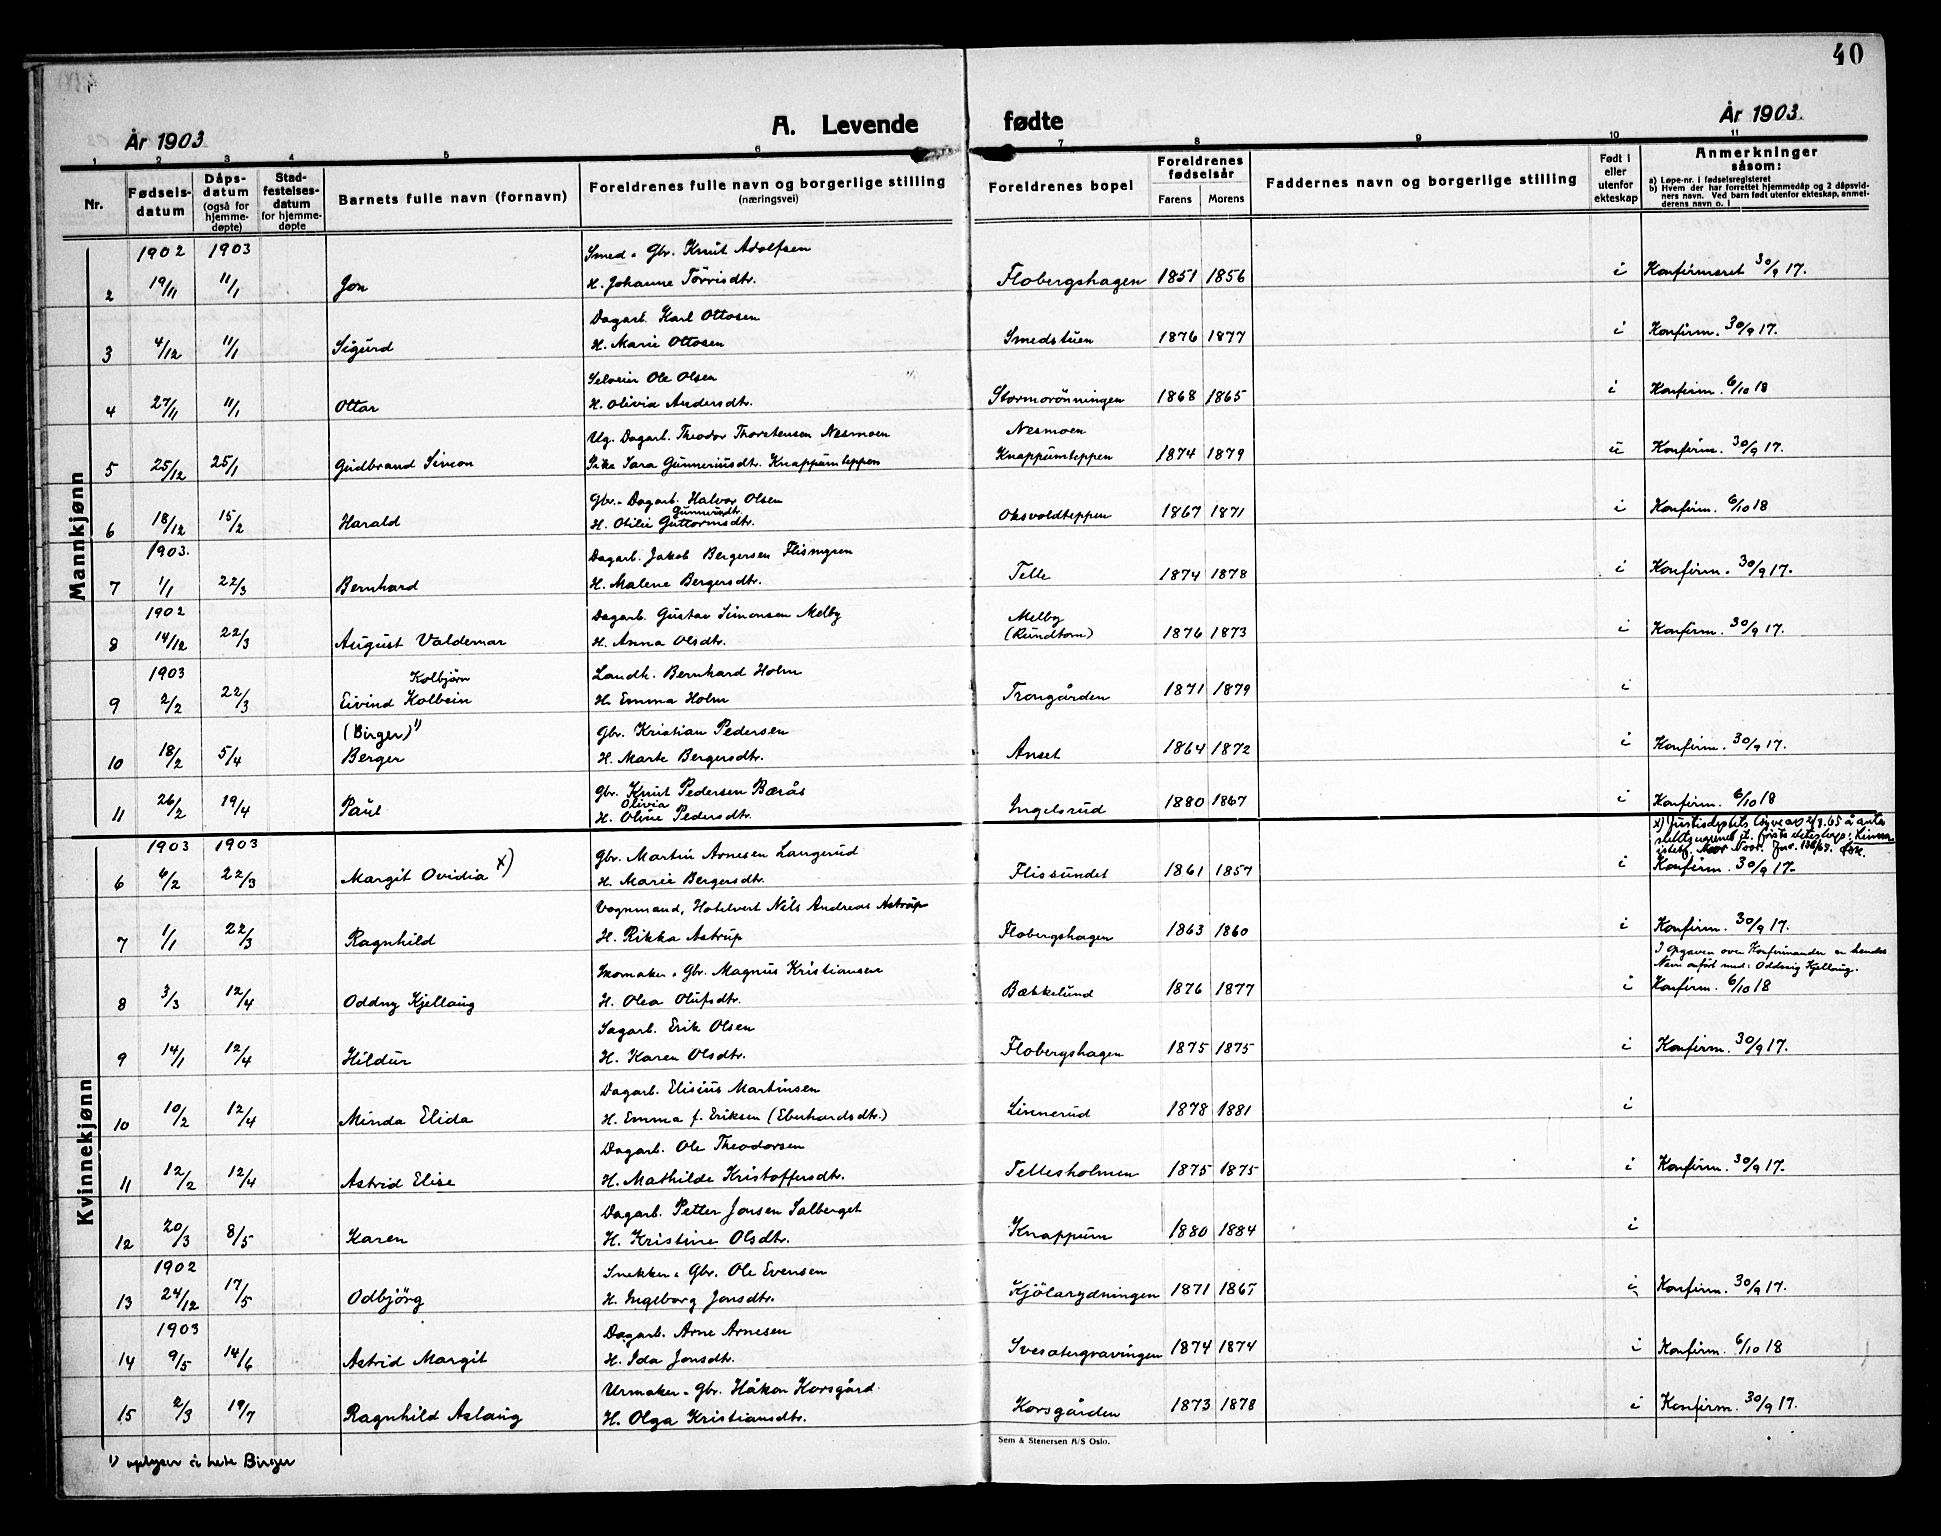 40
År 1903 A. Levende fødte År 1903.
1 2 3 4 5 6 7 8 9 10 11
Nr. Fødselsdatum Dåpsdatum (også for hjemmedøpte) Stadfestelsesdatum for hjemmedøpte Barnets fulle navn (fornavn) Foreldrenes fulle navn og borgerlige stilling (næringsvei) Foreldrenes bopel Foreldrenes fødselsår Farens Morens Faddernes navn og borgerlige stilling Født i eller utenfor ekteskap Anmerkninger såsom:
a) Løpe-nr. i fødselsregisteret
b) Hvem der har forrettet hjemmedåp og 2 dåpsvidners navn. Ved barn født utenfor ekteskap, anmelderens navn o. l
Mannkjønn
1902 1903 Smed. Gbr. Knut Adolfsen
2 19/11 11/1 Jon H. Johanne Törrisdtr. Flobergshagen 1851 1856 i Konfirmeret 30/9 17.
Dagarb. Karl Ottosen
3 4/12 11/1 Sigurd H. Marie Ottosen Smedstuen 1876 1877 i Konfirm. 30/9 17.
Selveier Ole Olsen
4 27/11 11/1 Ottar H. Olivia Andersdtr. Stormorönningen 1868 1865 i Konfirm. 6/10 18
Ug. Dagarb. Theodor Thorstensen Nesmoen Nesmoen
5 25/12 25/1 Gudbrand Simon Pike Sara Gunneriusdtr. Knappumteppen Knappumteppen 1874 1879 u Konfirm. 30/9 17.
Gbr. Dagarb. Halvor Olsen
Gunnerusdtr.
6 18/12 15/2 Harald H. Otilie Guttormsdtr. Oksvoldteppen 1867 1871 i Konfirm. 6/10 18
1903. Dagarb. Jakob Bergersen Flismyren
7 1/1 22/3 Bernhard H. Malene Bergersdtr. Telle 1874 1878 i Konfirm. 30/9 17.
1902 Dagarb. Gustav Simonsen Melby Melby
8 14/12 22/3 August Valdemar H. Anna Olsdtr. (Rundtom) 1876 1873 i Konfirm. 30/9 17.
1903 Kolbjørn Landh. Bernhard Holm
9 2/2 22/3 Eivind Kolbein H. Emma Holm Trongården 1871 1879 i
(Birger) 1) Gbr. Kristian Pedersen
10 18/2 5/4 Berger H. Marte Bergersdtr. Anset 1864 1872 i Konfirm. 30/9 17.
Gbr. Knut Pedersen Bærås
Olivia
11 26/2 19/4 Paul H. Oline Pedersdtr. Ingelsrud 1880 1867 i Konfirm. 6/10 18
Kvinnekjønn
x) Justisdeptets
1903 1903 Gbr. Martin Arnesen Langerud
6 6/2 22/3 Margit Ovidia x) H. Marie Bergersdtr. Flissundet 1861 1857 i Konfirm. 30/9 17.
Vognmand, Hotelvert Nils Andreas Astrup
7 1/1 22/3 Ragnhild H. Rikka Astrup Flobergshagen 1863 1860 i Konfirm. 30/9 17.
I Opgaven over Konfirmander er hendes
Navn anført med: Oddveig Kjellaug.
Skomaker. Gbr. Magnus Kristiansen
8 3/3 12/4 Oddny Kjellaug H. Olea Olufsdtr. Bækkelund 1876 1877 i Konfirm. 6/10 18
Sagarb. Erik Olsen
9 14/1 12/4 Hildur H. Karen Olsdtr. Flobergshagen 1875 1875 i Konfirm. 30/9 17.
Dagarb. Elisius Martinsen
10 10/2 12/4 Minda Elida H. Emma f. Eriksen (Eberhardsdtr.) Linnerud 1878 1881 i
Dagarb. Ole Theodorsen
11 12/2 12/4 Astrid Elise H. Mathilde Kristoffersdtr. Tellesholmen 1875 1875 i Konfirm. 30/9 17.
Dagarb. Petter Jonsen Salberget
12 20/3 8/5 Karen H. Kristine Olsdtr. Knappum 1880 1884 i
1902 Snekker. Gbr. Ole Evensen
13 24/12 17/5 Odbjörg H. Ingeborg Jonsdtr. Kjölarydningen 1871 1867 i Konfirm. 30/9 17.
1903 Dagarb. Arne Arnesen
14 9/5 14/6 Astrid Margit H. Ida Jonsdtr. Svesatergravingen 1874 1874 i Konfirm. 6/10 18
Urmaker. Gbr. Håkon Korsgård
15 2/3 19/7 Ragnhild Aslaug H. Olga Kristiansdtr. Korsgården 1873 1878 i Konfirm. 30/9 17.
Sem & Stenersen A/S Oslo.
1) oplyser å hete Birger